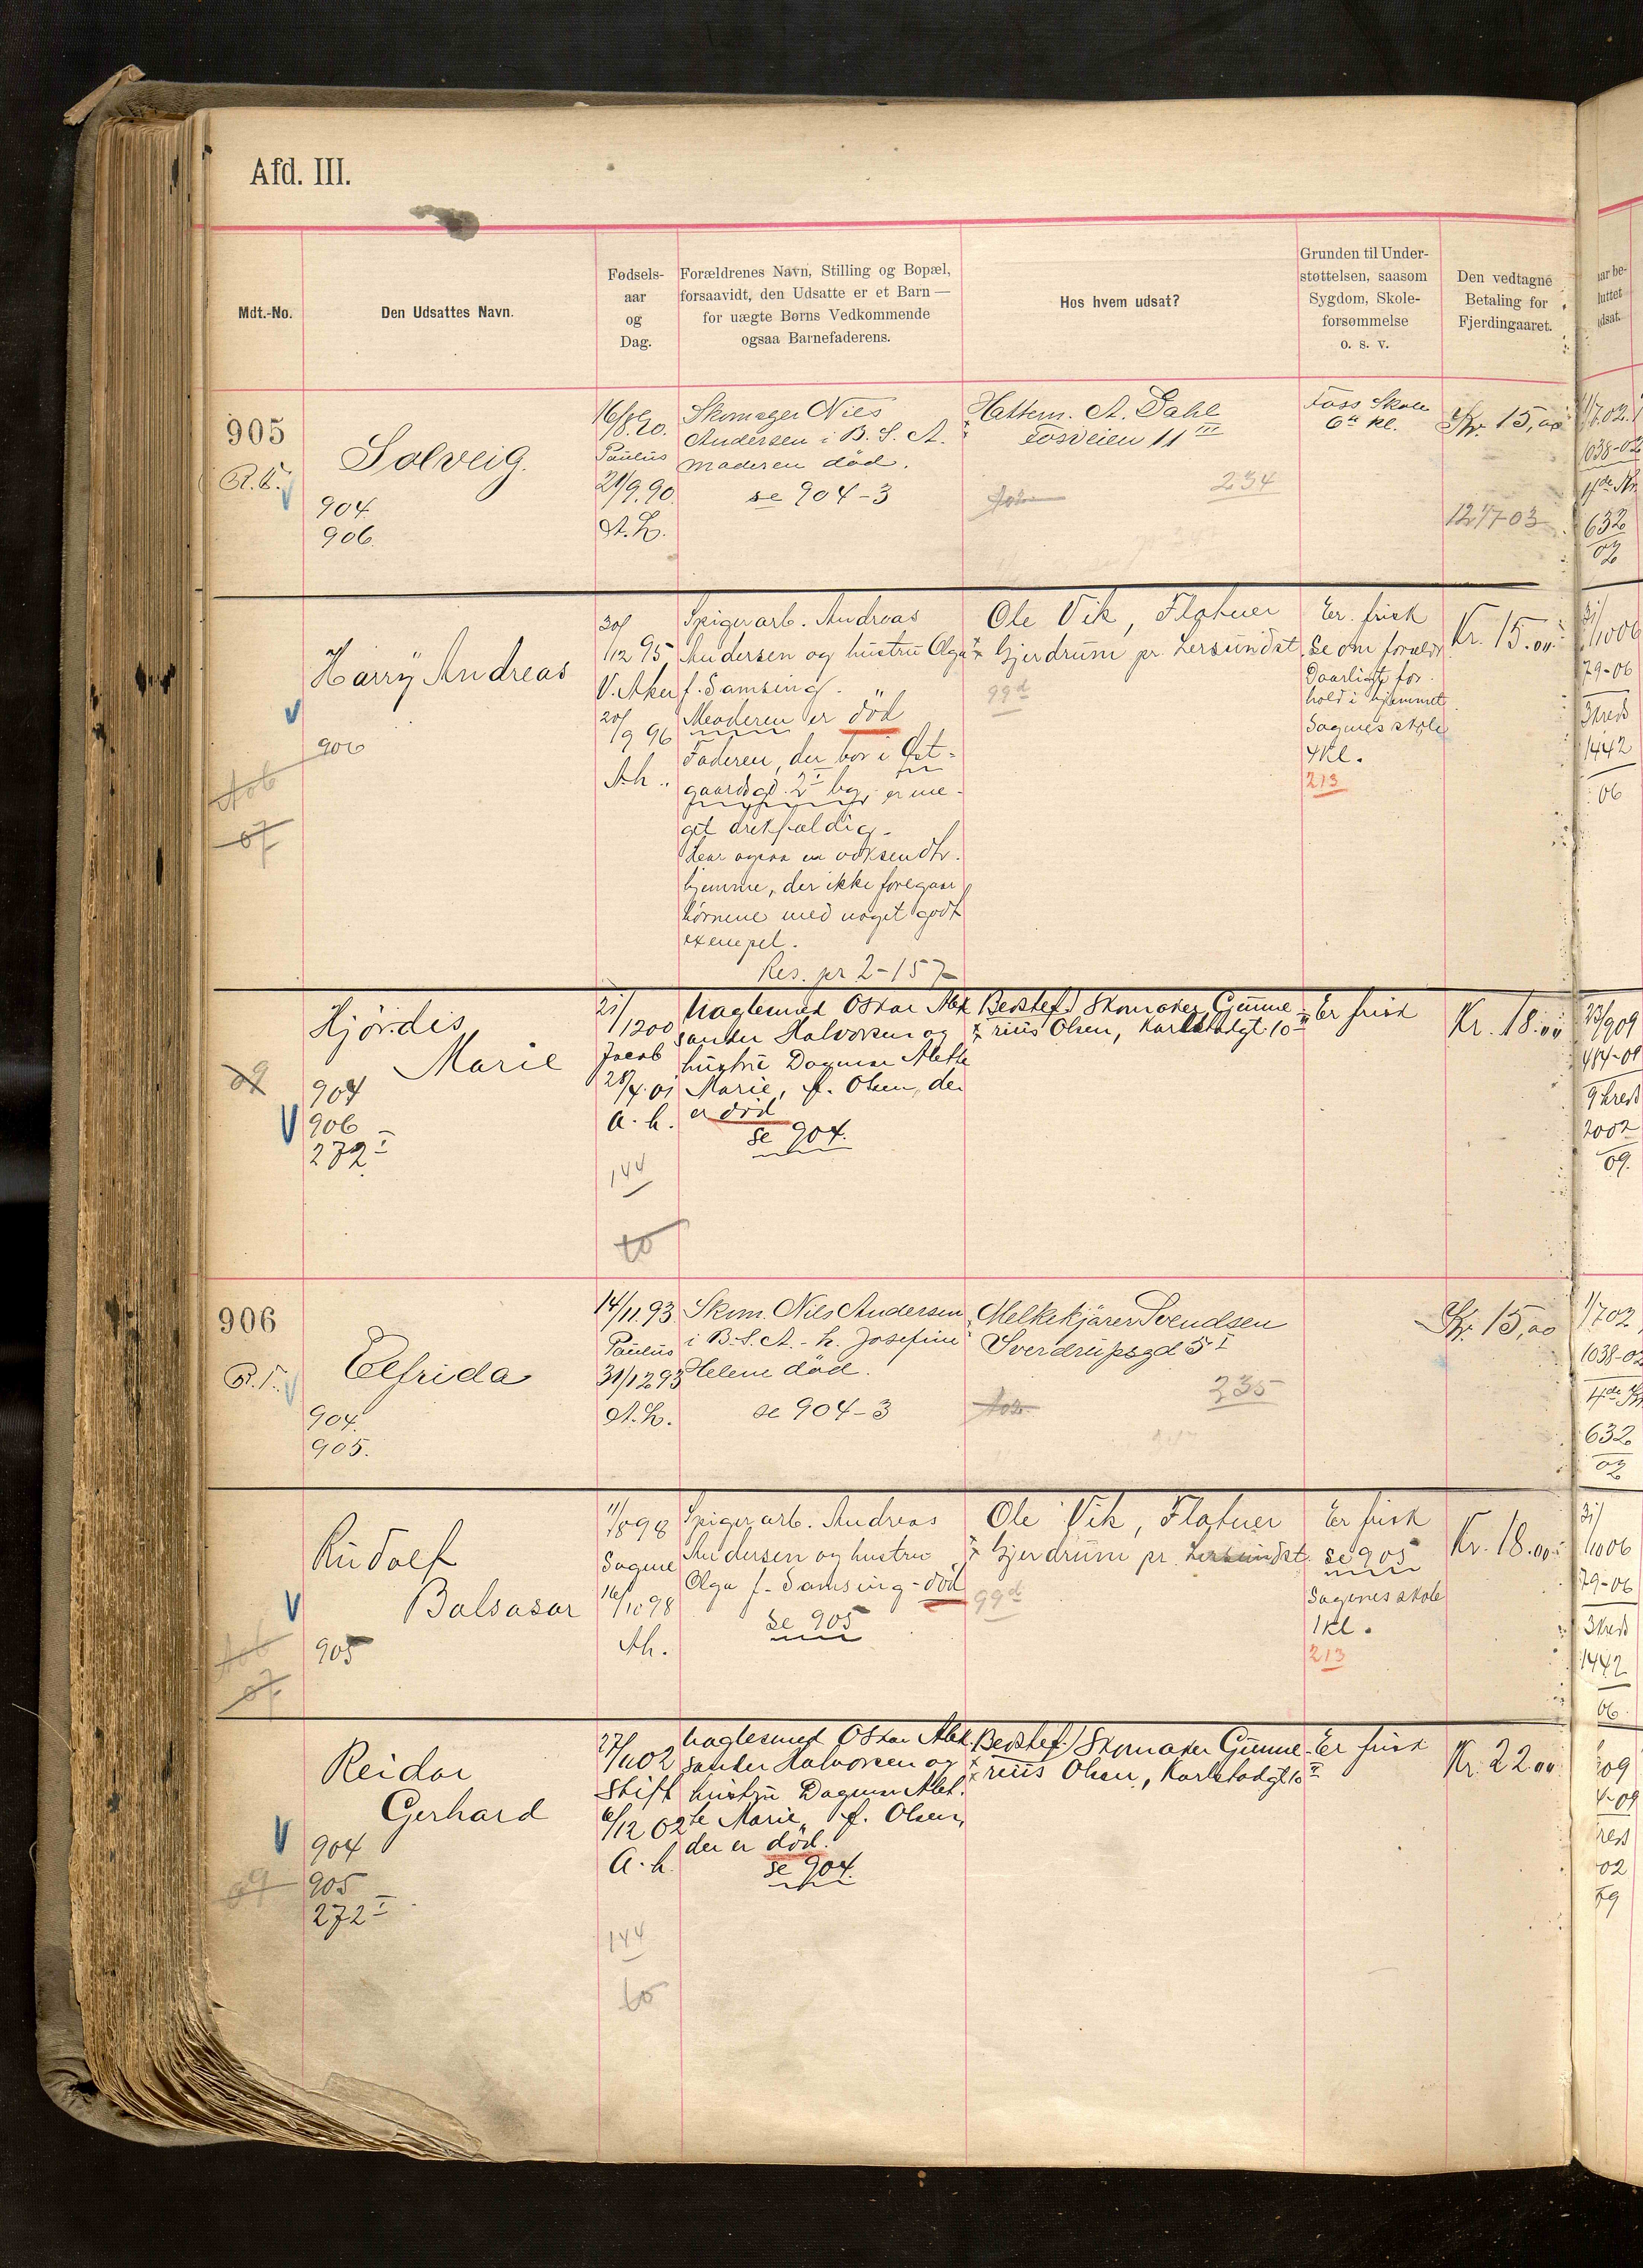 Afd. III.
Mdt.-No.
Den Udsattes Navn.
Fødsels-
aar
og
Dag.
Forældrenes Navn, Stilling og Bopæl,
forsaavidt, den Udsatte er et Barn —
for uægte Børns Vedkommende
ogsaa Barnefaderens.
Hos hvem udsat?
Grunden til Under-
støttelsen, saasom
Sygdom, Skole-
forsømmelse
o. s. v.
Den vedtagne
Betaling for
Fjerdingaaret.
905
Solveig.
904
906.
Paulus
21/9.90.
A.h.
Skomager Nils
Andersen i B.S.A.
Moderen død.
se 904-3
A. Dahl
Fosveien 11 III
234
Foss Skole
6te kl.
Kr. 15,00
Harry Andreas
906
30/
12 95
V. Aker
20/
9 96
Ah.
Spigerarb. Andreas
Andersen og hustru Olga
f. Samsing.
Moderen er død
Faderen, der bor i Øst-
gaardsgd. 2 I bor, er me-
get drikfældig.
Har ogsaa en voksen dtr.
hjemme, der ikke foregaar
børnene med noget godt
exempel.
Res. pr 2-157
Ole Vik, Flatner
Gjerdrum pr. Lersundet
99d
Er frisk
Se om foreldr
Daarligt for-
hold i hjemmet
Sagnes skole
4kl.
213
Kr. 15.00
Hjørdis
Marie
09
904
906
272 I
21/
1200
Jacob
28/4.01
a.h.
144
10
Naglesmed Oskar Alex
sander Halvorsen og
hustru Dagmar Alette
Marie, f. Olsen, der
er død
se 904.
Bestef. Skomaker Gunne-
rius Olsen, Karlstadgt 10 II
Er frisk
Kr. 18.00
906
Elfrida
904.
905.
14/11.93
Paulus
31/12 93
A.h.
Skom. Nils Andersen
i B.S.A. - h. Josefine
Helene død.
se 904-3
Melkekjører Svendsen
Sverdrupsgd 5 I
235
Kr. 15,00
Rudolf
Balsasar
905
11/898
Sagne
16/1098
Ah.
Spigerarb. Andreas
Andersen og hustru
Olga f. Samsing - død
Se 905
Ole Vik, Flatner
Gjerdrum pr. Lersundet
99d
Er frisk
se 905
Sagnes skole
1kl.
213
Kr. 18.00
Reidar
Gerhard
904
905
272 I
27/1102
Stift
6/12 02
a.h.
144
10
Naglesmed Oskar Alex.
sander Halvorsen og
hustru Dagmar Alet-
te Marie, f. Olsen,
der er død.
se 904.
Bestef. Skomaker Gunne-
rius Olsen, Karlstadgt 10 II
Er frisk
Kr. 22.00